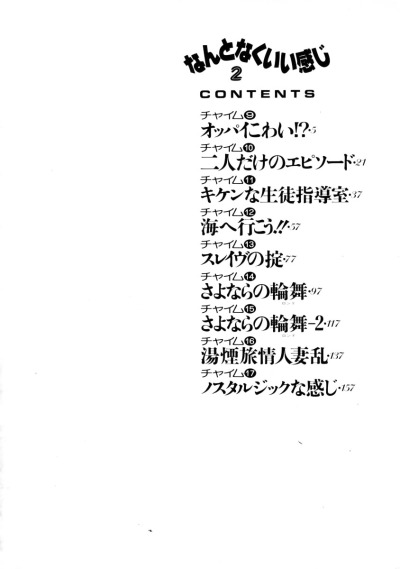 なんとなくいい感じ
2
CONTENTS
チャイム9
オッパイこわい!?・5
チャイム10
二人だけのエピソード・21
チャイム11
キケンな生徒指導室・37
チャイム12
海へ行こう!!・57
チャイム13
スレイヴの掟・77
チャイム14
さよならの輪舞・97
チャイム15
さよならの輪舞-2・117
チャイム16
湯煙旅情人妻乱・137
チャイム17
ノスタルジックな感じ・157